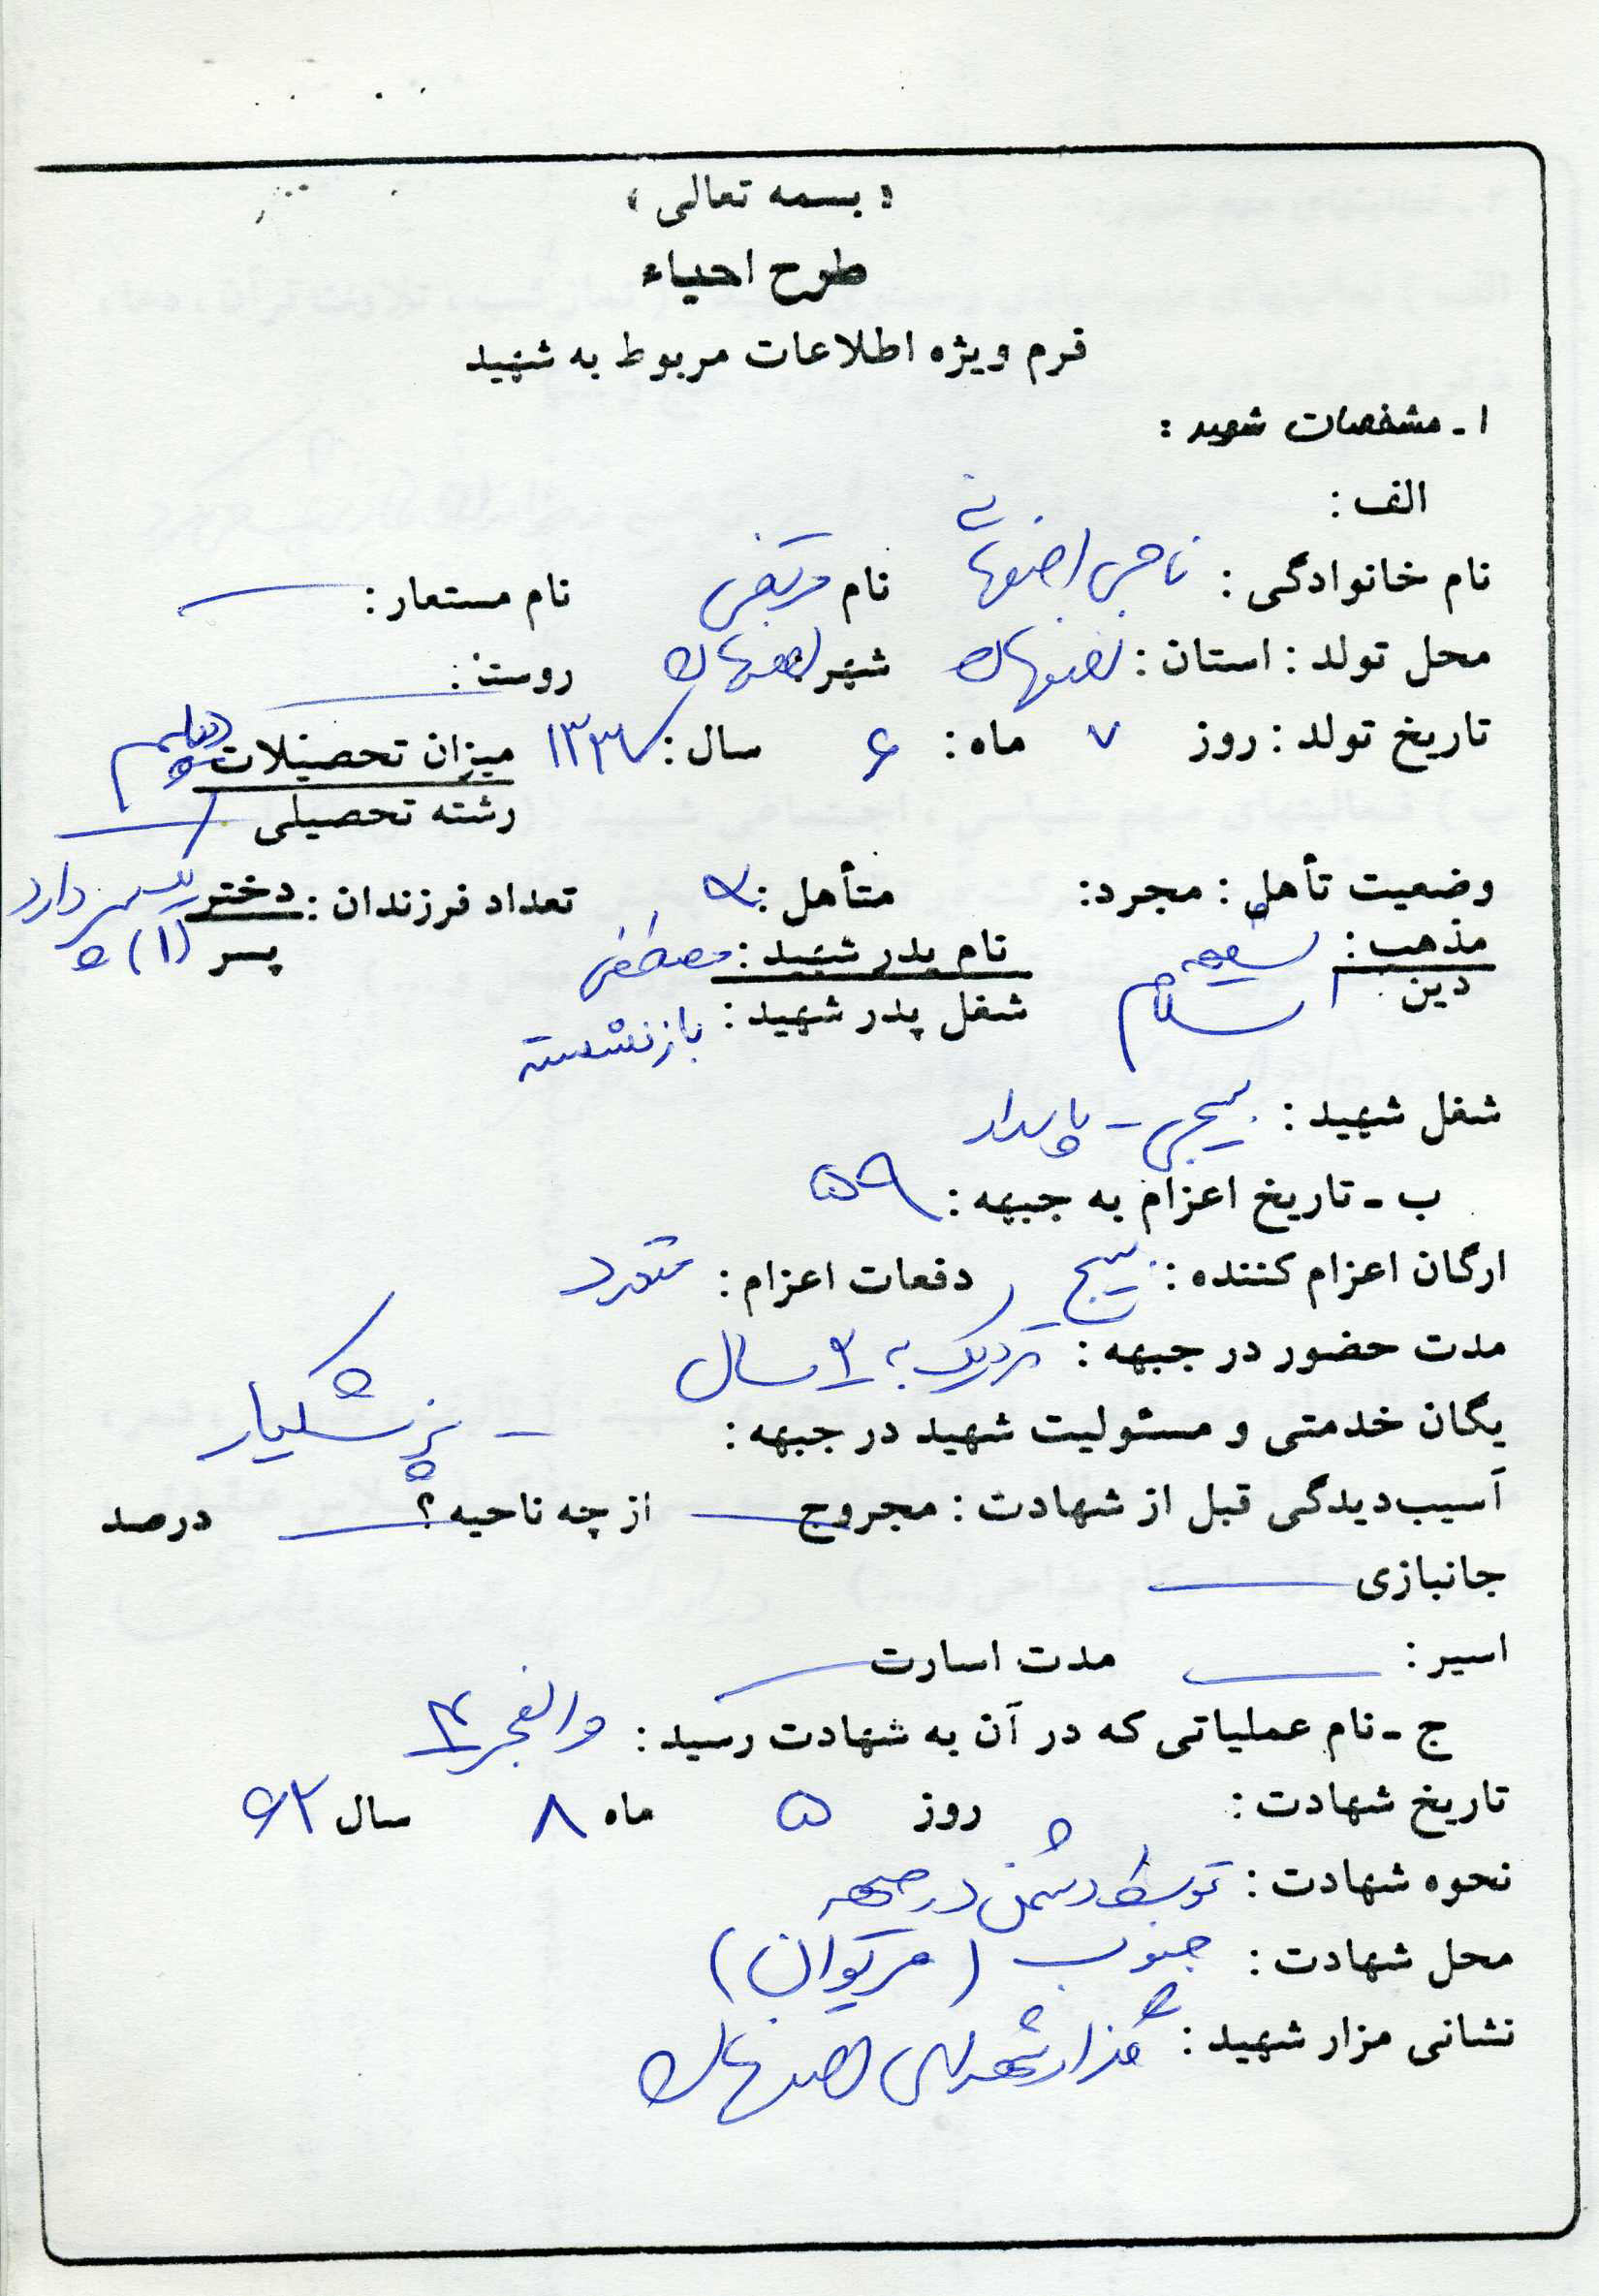 « بسمه تعالی »
طرح احیاء
فرم ویژه اطلاعات مربوط به شهید
۱ ـ مشخصات شهید :
الف :
نام خانوادگی : ناجی اصفهانی نام مرتضی نام مستعار :
محل تولد : استان : اصفهان شهر : اصفهان روستا :
تاریخ تولد : روز ۷ ماه : ۶ سال : ۱۳۳۷ میزان تحصیلات دیپلم
رشته تحصیلی
وضعیت تأهل : مجرد : متأهل : تعداد فرزندان : دختر یک پسر دارد
پسر (۱)
مذهب : شیعه نام پدر شهید : مصطفی
دین : اسلام شغل پدر شهید : بازنشسته
شغل شهید : بسیجی - پاسدار
ب ـ تاریخ اعزام به جبهه : ۵۹
ارگان اعزام کننده : بسیج دفعات اعزام : متعدد
مدت حضور در جبهه : نزدیک به سال
یگان خدمتی و مسئولیت شهید در جبهه : - پزشکیار
آسیب‌دیدگی قبل از شهادت : مجروح از چه ناحیه ؟ درصد
جانبازی
اسیر : مدت اسارت
ج ـ نام عملیاتی که در آن به شهادت رسید : والفجر ۴
تاریخ شهادت : روز ۵ ماه ۸ سال ۶۲
نحوه شهادت : توسط دشمن در جبهه
محل شهادت : جنوب ( مریوان )
نشانی مزار شهید : گلزار شهدای اصفهان